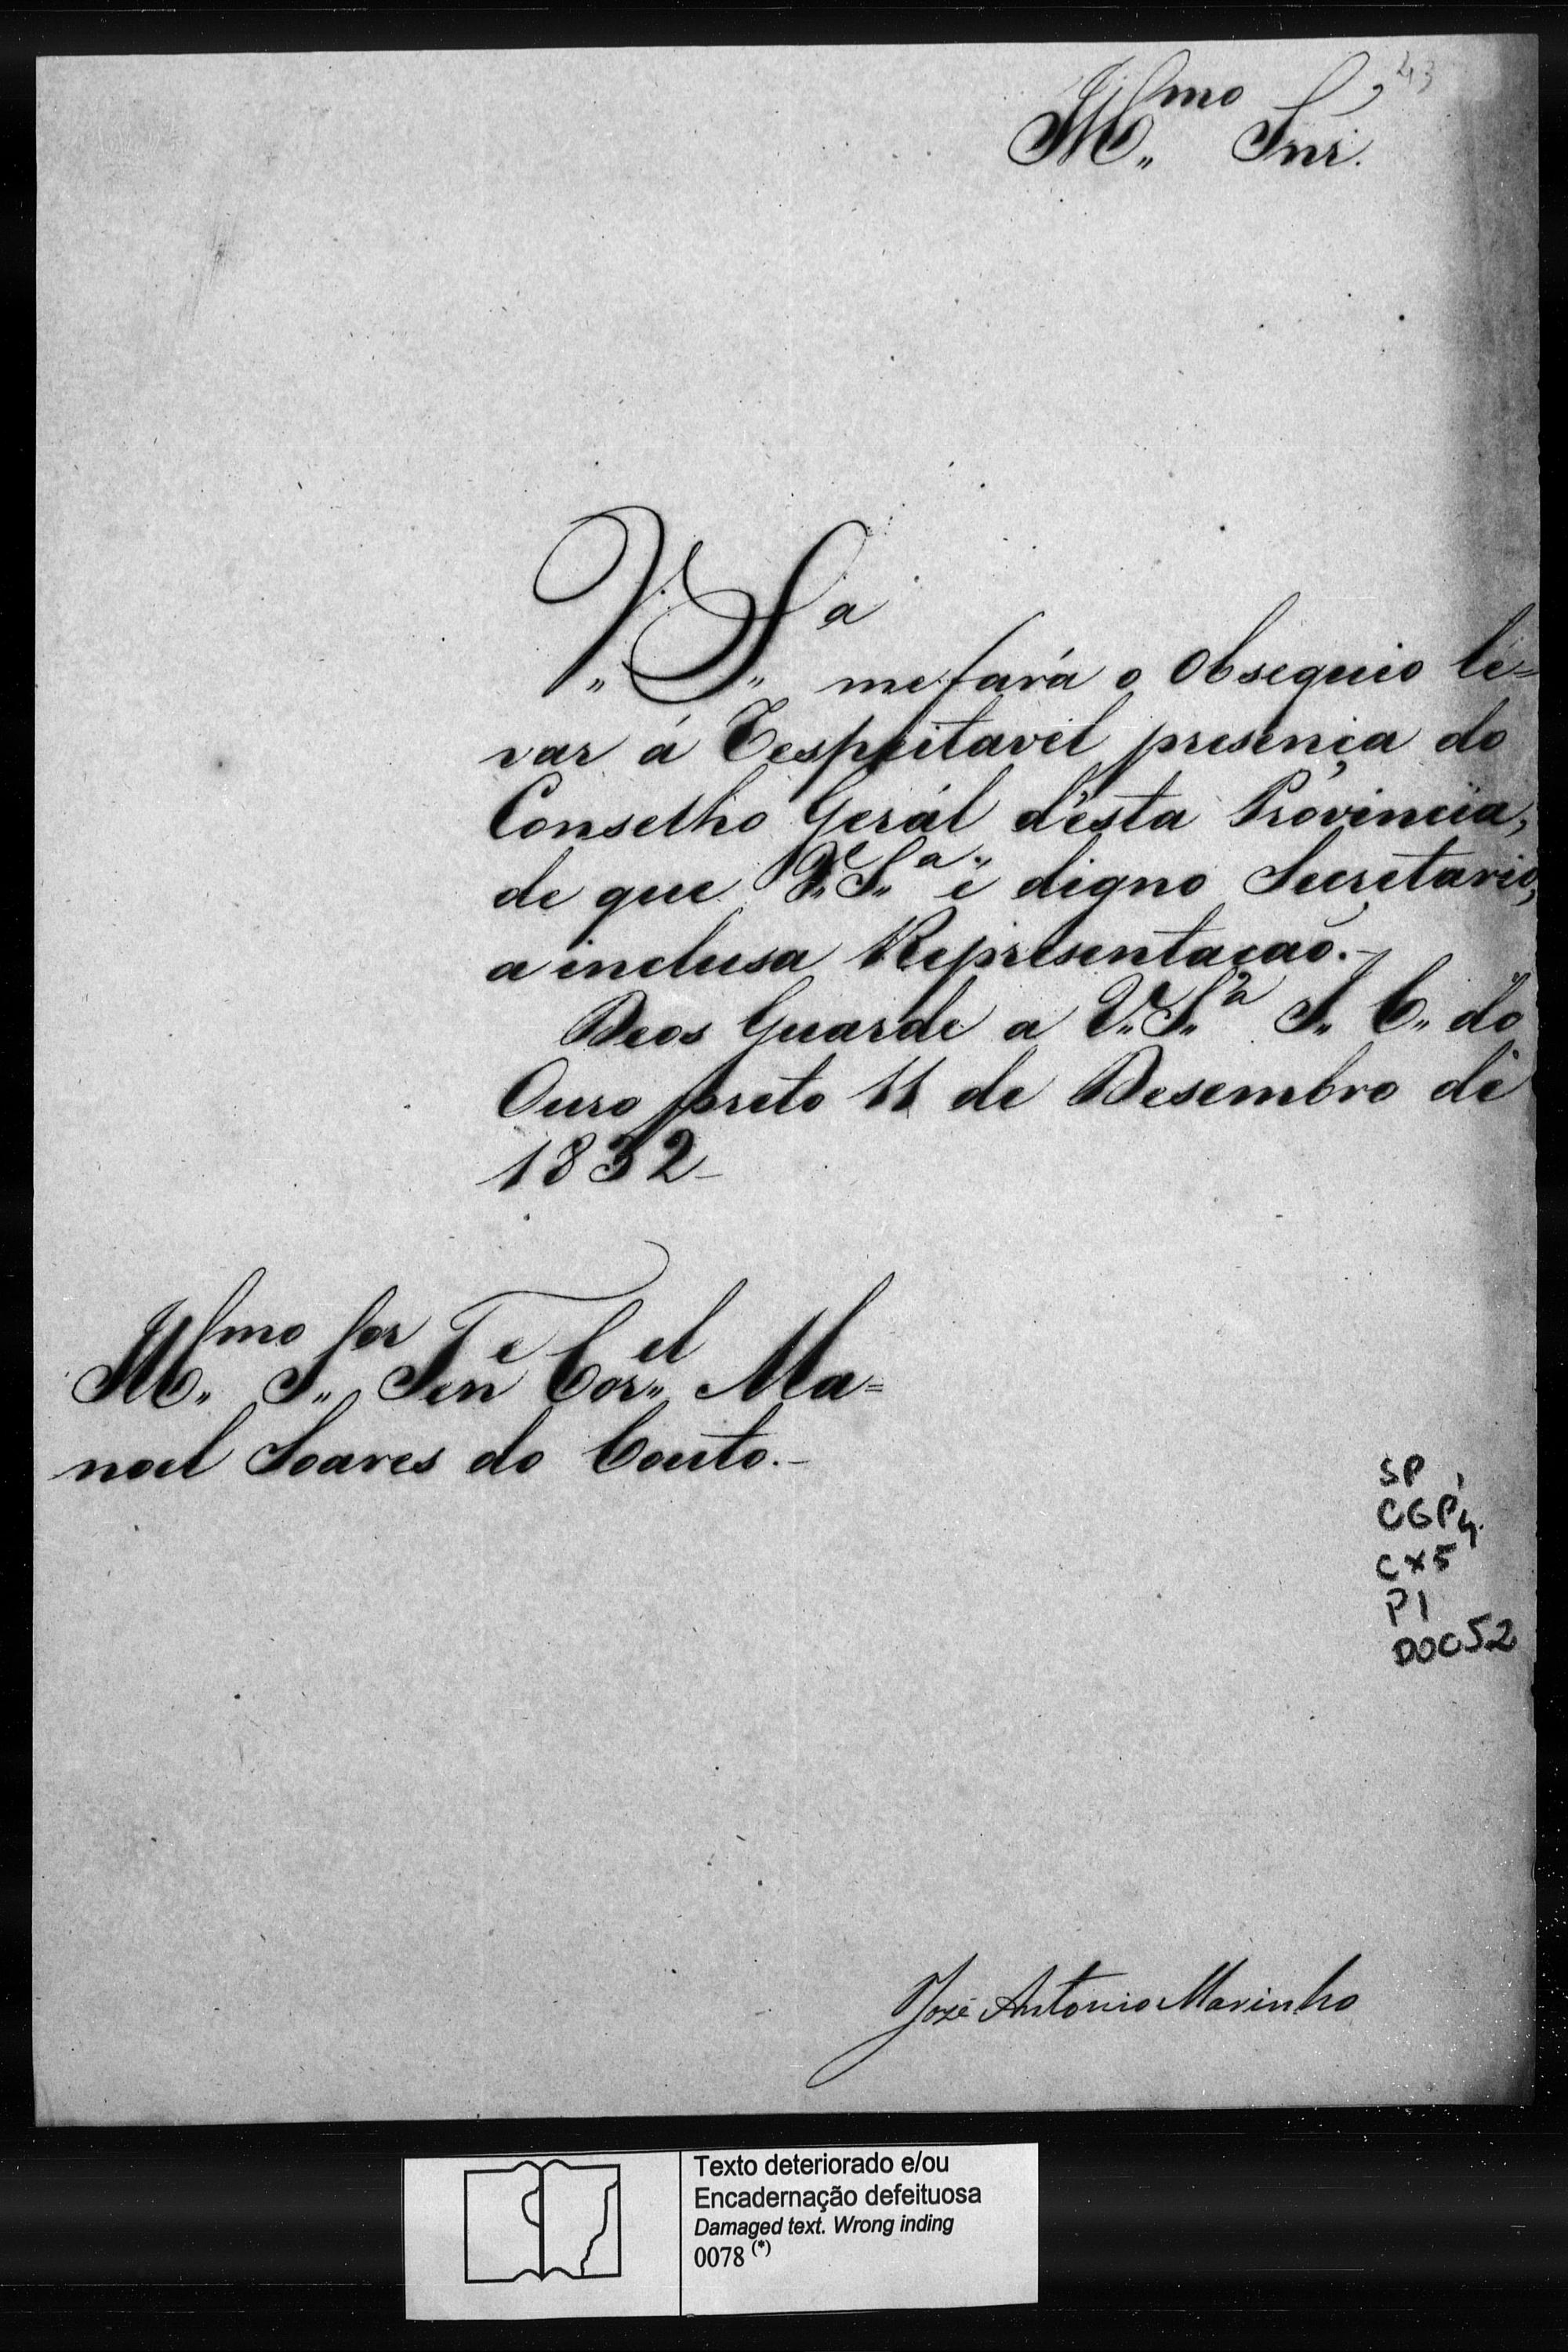 43
Ill.mo Snr.
V.S.a me fará o Obsequio le=
var á Respeitavel presença do
Conselho Gerál d'esta Provincia,
de que V.S.a é digno Secretario,
a inclusa Representação.-
Deos Guarde a V.S.a I. C. do
Ouro preto 11 de Desembro de
1832-
Ill.mo S.or Ten.e Cor.el Ma=
noel Soares do Couto.-
SP
CGP4.
CX5
P1
DOC52
Jozé Antonio Marinho
Texto deteriorado e/ou
Encadernação defeituosa
Damaged text. Wrong inding
0078 (*)